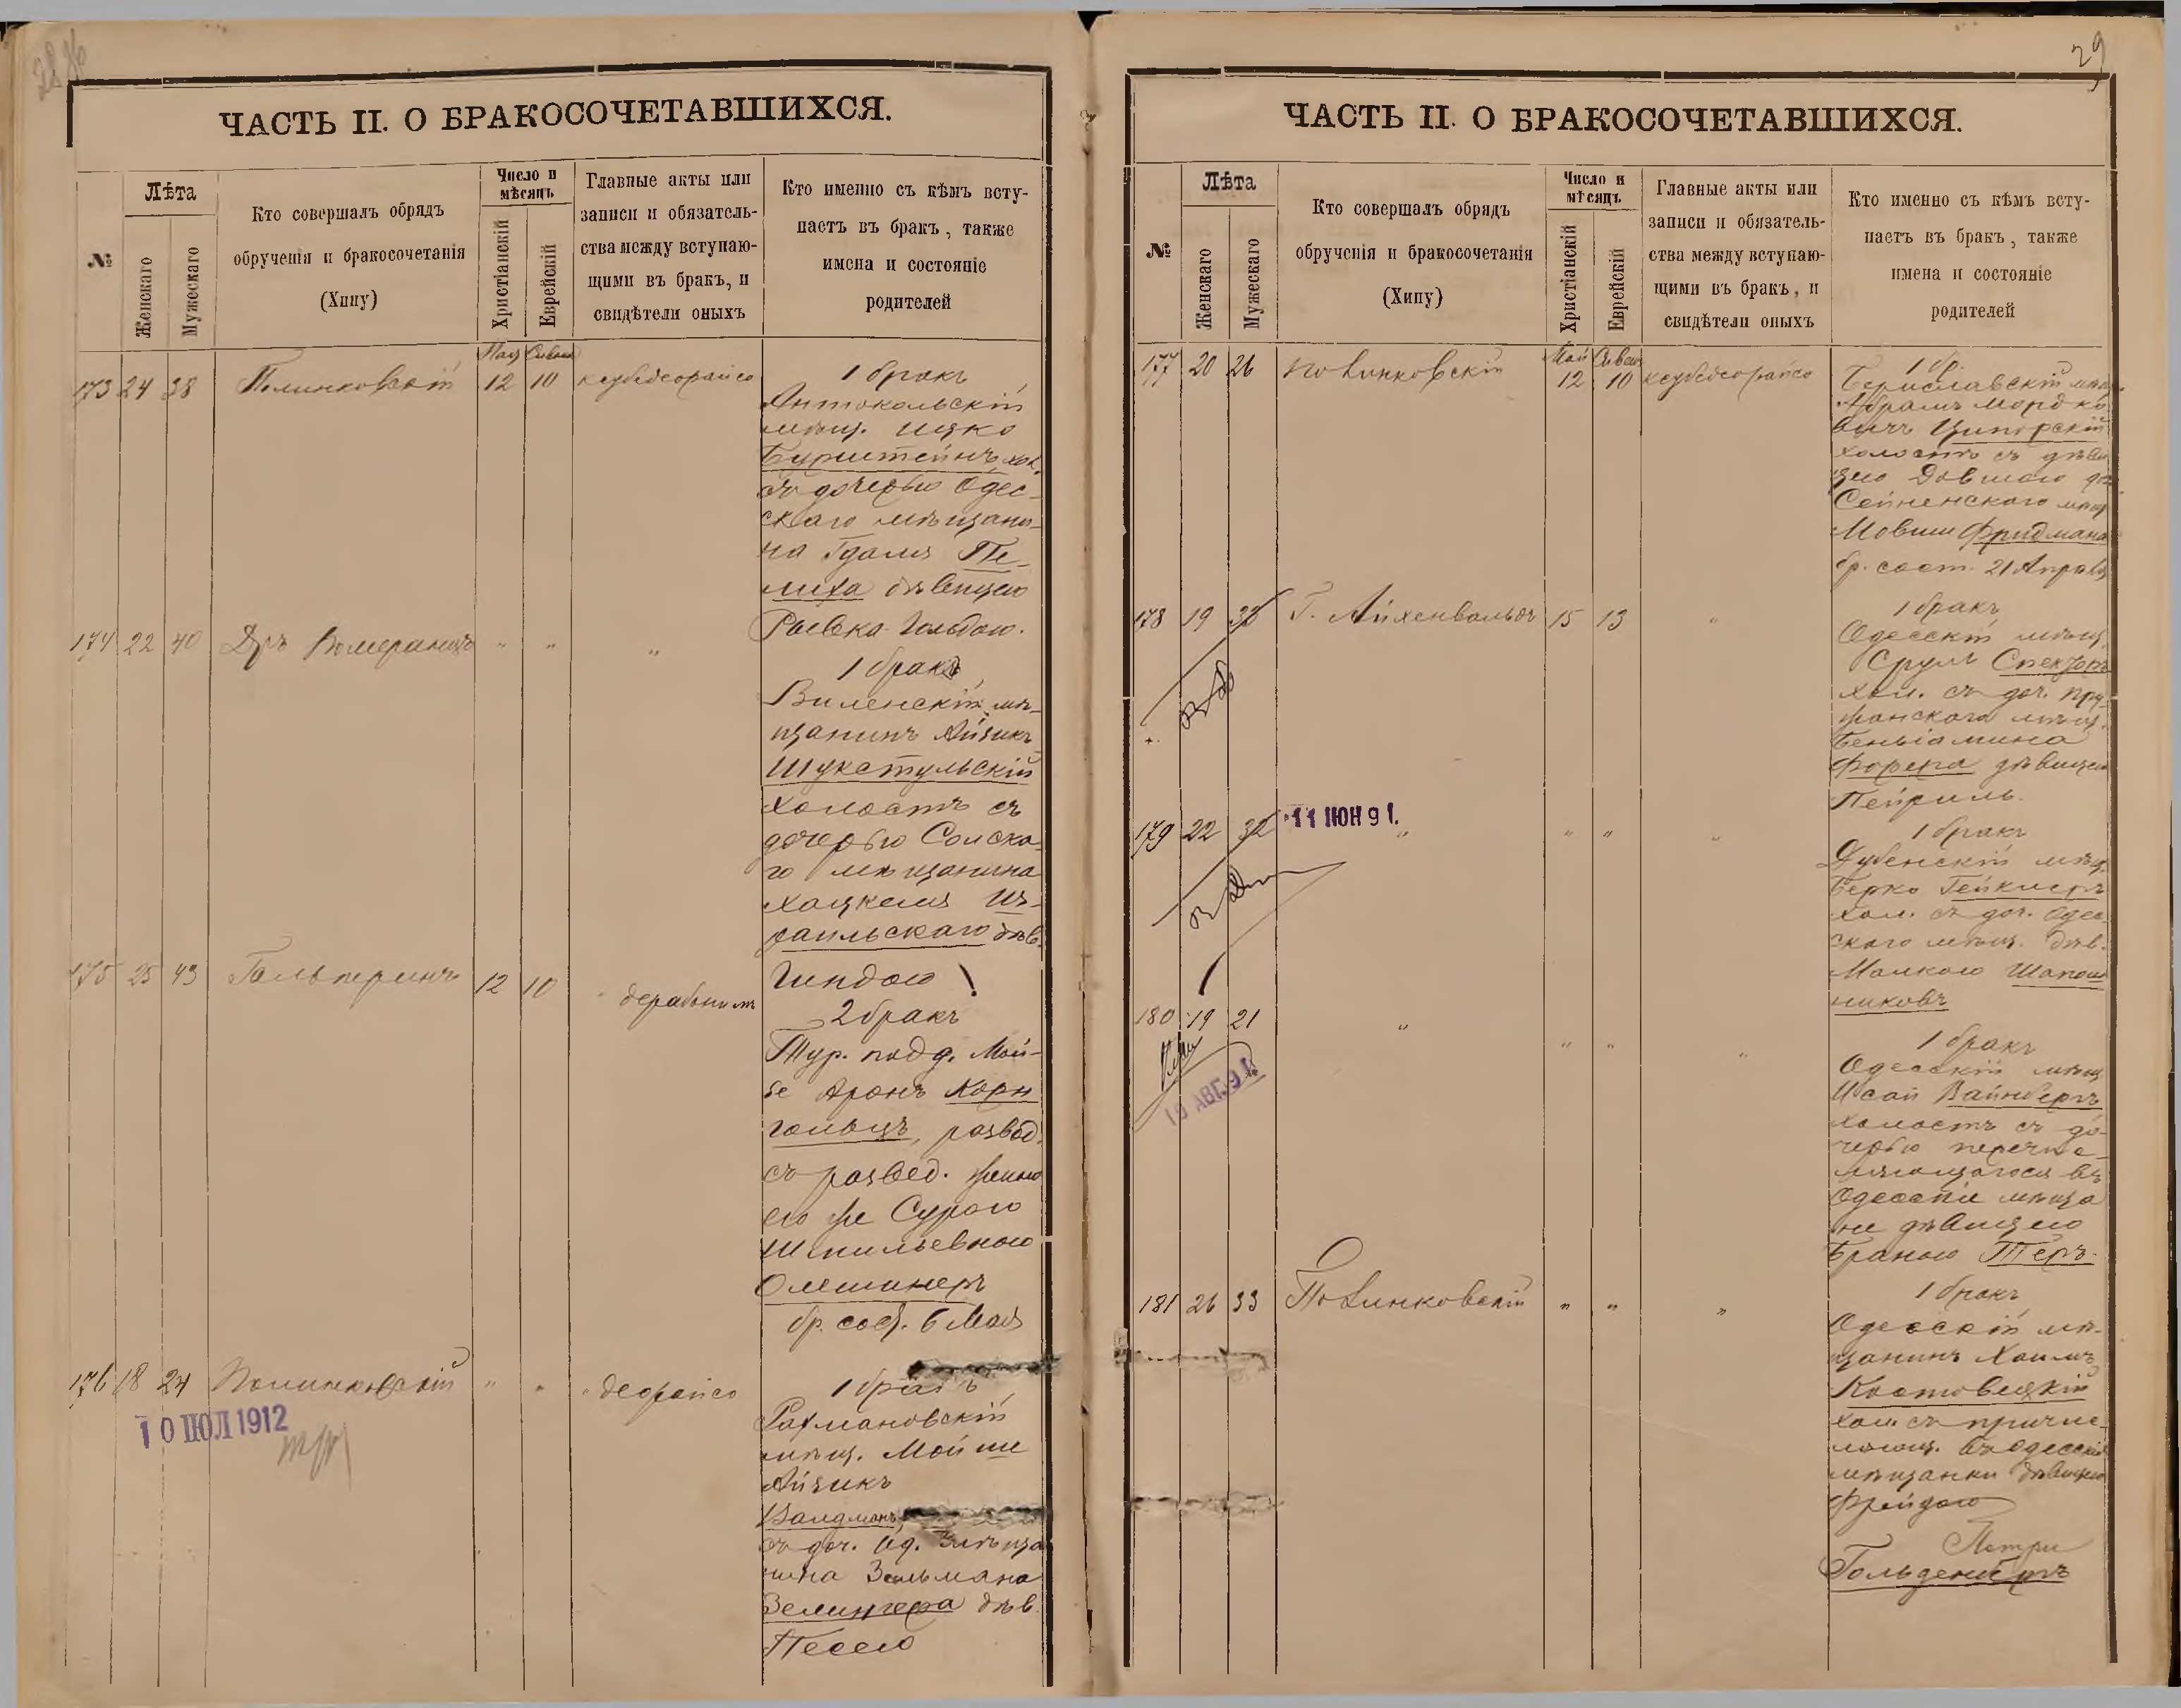 29
ЧАСТЬ II. О БРАКОСОЧЕТАВШИХСЯ.
№
Лѣта
Женскаго
Мужескаго
Кто совершалъ обрядъ
обрученія и бракосочетанія
(Хипу)
Число и
мѣсяцъ
Христіанскій
Еврейскій
Главные акты или
записи и обязатель-
ства между вступаю-
щими въ бракъ, и
свидѣтели оныхъ
Кто именно съ кѣмъ всту-
паетъ въ бракъ, также
имена и состояніе
родителей
173 24 38 Полинковскій 12 10
1 бракъ
Антокольскій
мѣщ. Ицко
Бурштейнъ, хол.
съ дочерью Одес-
скаго мѣщани-
на Гдаля Пе-
лиха дѣвицею
Ривка-Гольдою.
174 22 40 Дръ Померанцъ " " "
1 бракъ
Виленскій мѣ-
щанинъ Айзикъ
Шукстульскій
холостъ съ
дочерью Солска-
го мѣщанина
Хацкеля Из-
раильскаго дѣв.
Гиндою !
175 25 43 Гальперинъ 12 10
2 бракъ
Тур. подд. Мой-
Аронъ Корн
гольцъ, развод.
съ развед. женою
его же Сурою
Шмильевною
бр. сост. 6 Мая
176 18 24 Полинковскій " " деорайсо
10 ІЮЛ 1912
1 бракъ
Рахмановскій
мѣщ. Мойше
Айзикъ
Валдманъ,
съ доч. Од. мѣща
нина Зельмана
Зелингера дѣв.
Песею
ЧАСТЬ II. О БРАКОСОЧЕТАВШИХСЯ.
№
Лѣта
Женскаго
Мужескаго
Кто совершалъ обрядъ
обрученія и бракосочетанія
(Хипу)
Число и
мѣсяцъ
Христіанскій
Еврейскій
Главные акты или
записи и обязатель-
ства между вступаю-
щими въ бракъ, и
свидѣтели оныхъ
Кто именно съ кѣмъ всту-
паетъ въ бракъ, также
имена и состояніе
родителей
Май
177 20 26 Полинковскій 12 10
1 бр.
Бериславскій мѣщ.
Абрамъ Мордко
вичъ Ципорскій
холостъ съ дѣви
цею
Сейненскаго мѣщ
Мовши Фридмана
бр. сост. 21 Апрѣля
178 19 Г. Айхенвальдъ 15 13 "
1 бракъ
Одесскій мѣщ.
Сруль Спекторъ
хол. съ доч. Пру-
жанскаго мѣщ.
Беньіамина
Форера дѣвицею
Пейриль.
179 22 32 " " " "
11 ІЮН 91.
1 бракъ
Дубенскій мѣщ.
Берко Гейклеръ
хол. съ доч. Одес
скаго мѣщ. дѣв.
Малкою Шапош
никовъ
180 19 21 " " " "
10 АВГ. 91.
1 бракъ
Одесскій мѣщ
Исай Вайнбергъ
холостъ съ до-
черью перечис-
ляющагося въ
Одесскіе мѣща
не дѣвицею
Браною Теръ.
181 26 33 Полинковскій " " "
1 бракъ
Одесскій мѣ-
щанинъ Хаимъ
Костовецкій
хол. съ причис-
ляющ. въ Одесскія
мѣщанки дѣвицею
Фрейдою
Петри
Гольденбергъ